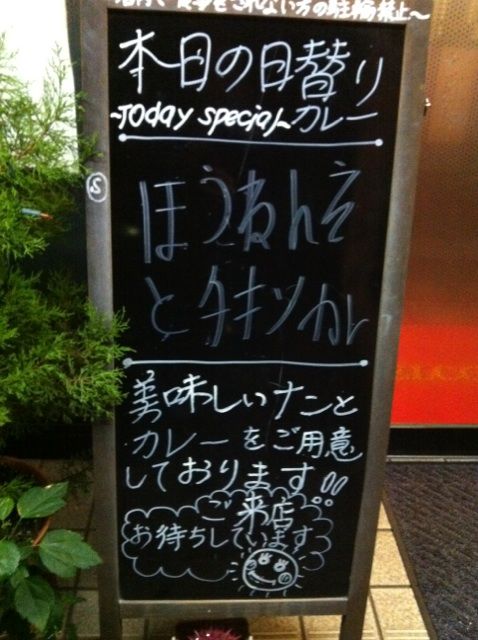 店内で食事をされない方の駐輪禁止~
本日の日替り
~TODAY SPECIAL カレー
ほうねんそ
とチキソカレ
美味しいナンと
カレーをご用意
しております!!
ご来店
お待ちしています
S